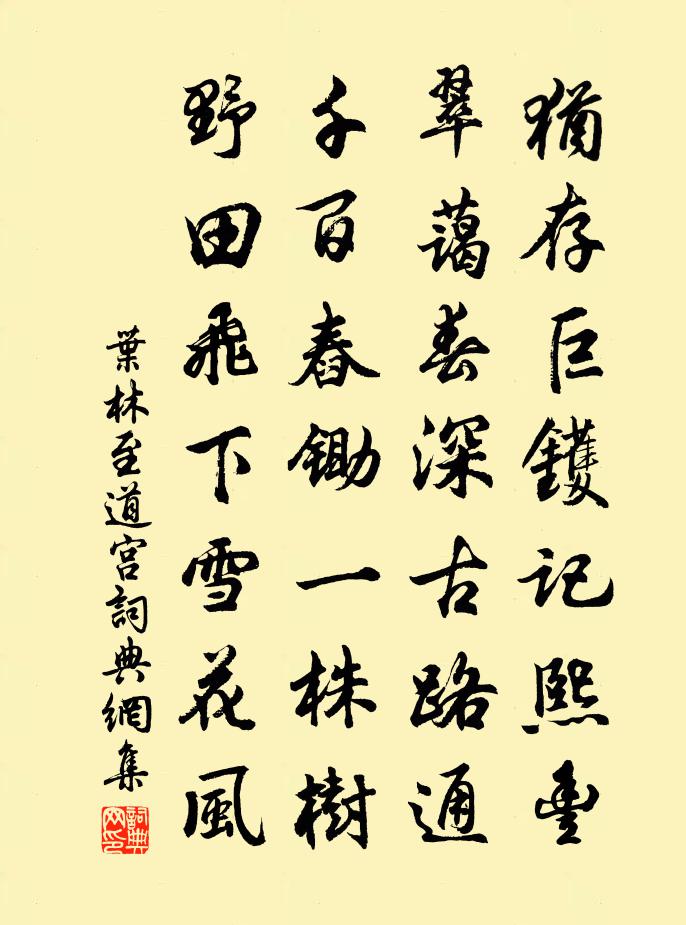 猶存巨鑊記熙豐
翠藹春深古路通
千百舂鋤一株樹
野田飛下雪花風
葉林至道宮詞典網集
詞典網印